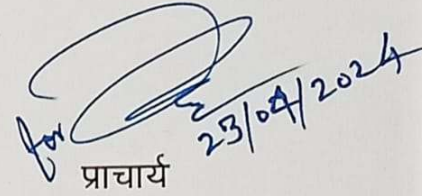 for
23/04/2024
प्राचार्य